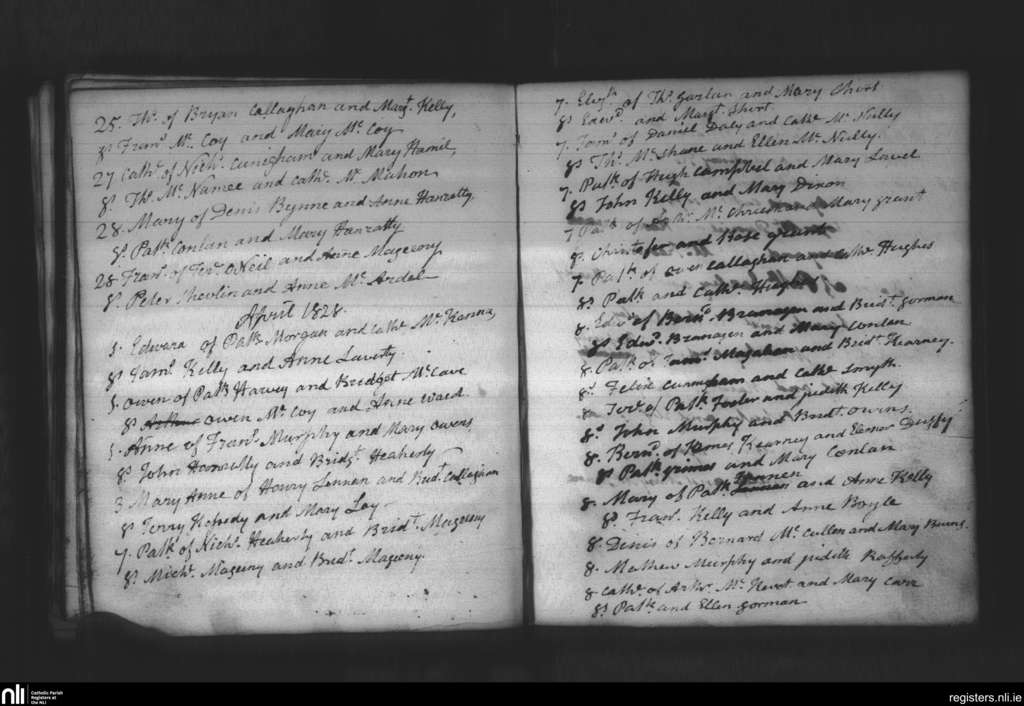 25. Ths. of Bryan Callaghan and Margt. Kelly,
gs Frans. Mc. Coy and Mary Mc. Coy
27 Cathe. of Nichs. Cunigham and Mary Hamil,
gs. Ths. Mc. Namee and Cathe. Mc Mahon
28. Mary of Denis Byrne and Anne Hanratty.
gs. Patk. Conlan and Mary Hanratty
28 Frans. of Ter. ONeil and Anne Mageeny
gs. Peter Shevlin and Anne Mc. Ardel
April 1828.
5. Edward of Patk. Morgan and Cathe Mc. Kenna,
gs Jams. Kelly and Anne Laverty
5. Owen of Patk Harvey and Bridget Mc Cave
gs Owen Mc. Coy and Anne Ward.
5. Anne of Frans. Murphy and Mary Owens
gs. John Hanratty and Bridgt. Heaherty
3 Mary Anne of Henry Lennen and Bridt. Callaghan
gs Terry and Mary Loy
7. Patk. of Nichs. Heaherty and Bridt. Mageeny
gs. Michl. Mageeny and Bridt. Mageeny.
7. of Ths. Garlan and Mary Short
gs Edwd. and Margt. Short
7. of Daniel Daly and Cathe Mc. Nully
gs Ths. Mc. Shane and Ellen Mc. Nully.
7. Patk. of Hugh Campbell and Mary Lavel
gs John Kelly and Mary Dixon
7 Patk of Mc. and Mary Grant
gs. and Rose Grant
7. Patk. of Owen Callaghan and Cathe Hughes
gs Patk and Cathe. Hughes
8. Edwd. of Bernd. Branagen and Bridt. Gorman
gs Edwd. Branagen and Mary Conlan
8. Patk. of Jams. Magahan and Bridt Kearney.
gs. Felix Cunigham and Cathe Smyth.
8. Ter. of Patk. and Judith Kelly
gs John Murphy and Bridt. Owens.
8. Bernd. of James Kearney and Elenor Duffy
gs Patk. Grimes and Mary Conlan
8. Mary of Patk. Lennen and Anne Kelly
gs Frans. Kelly and Anne Boyle
8. Dinis of Bernard Mc. Cullen and Mary Burns.
8. Mathew Murphy and Judith Rafferty
8 Cathe. of Arthr. Mc. and Mary Carr
gs Patk. and Ellen Gorman
nli
Catholic Parish
Registers at
the NLI
registers.nli.ie